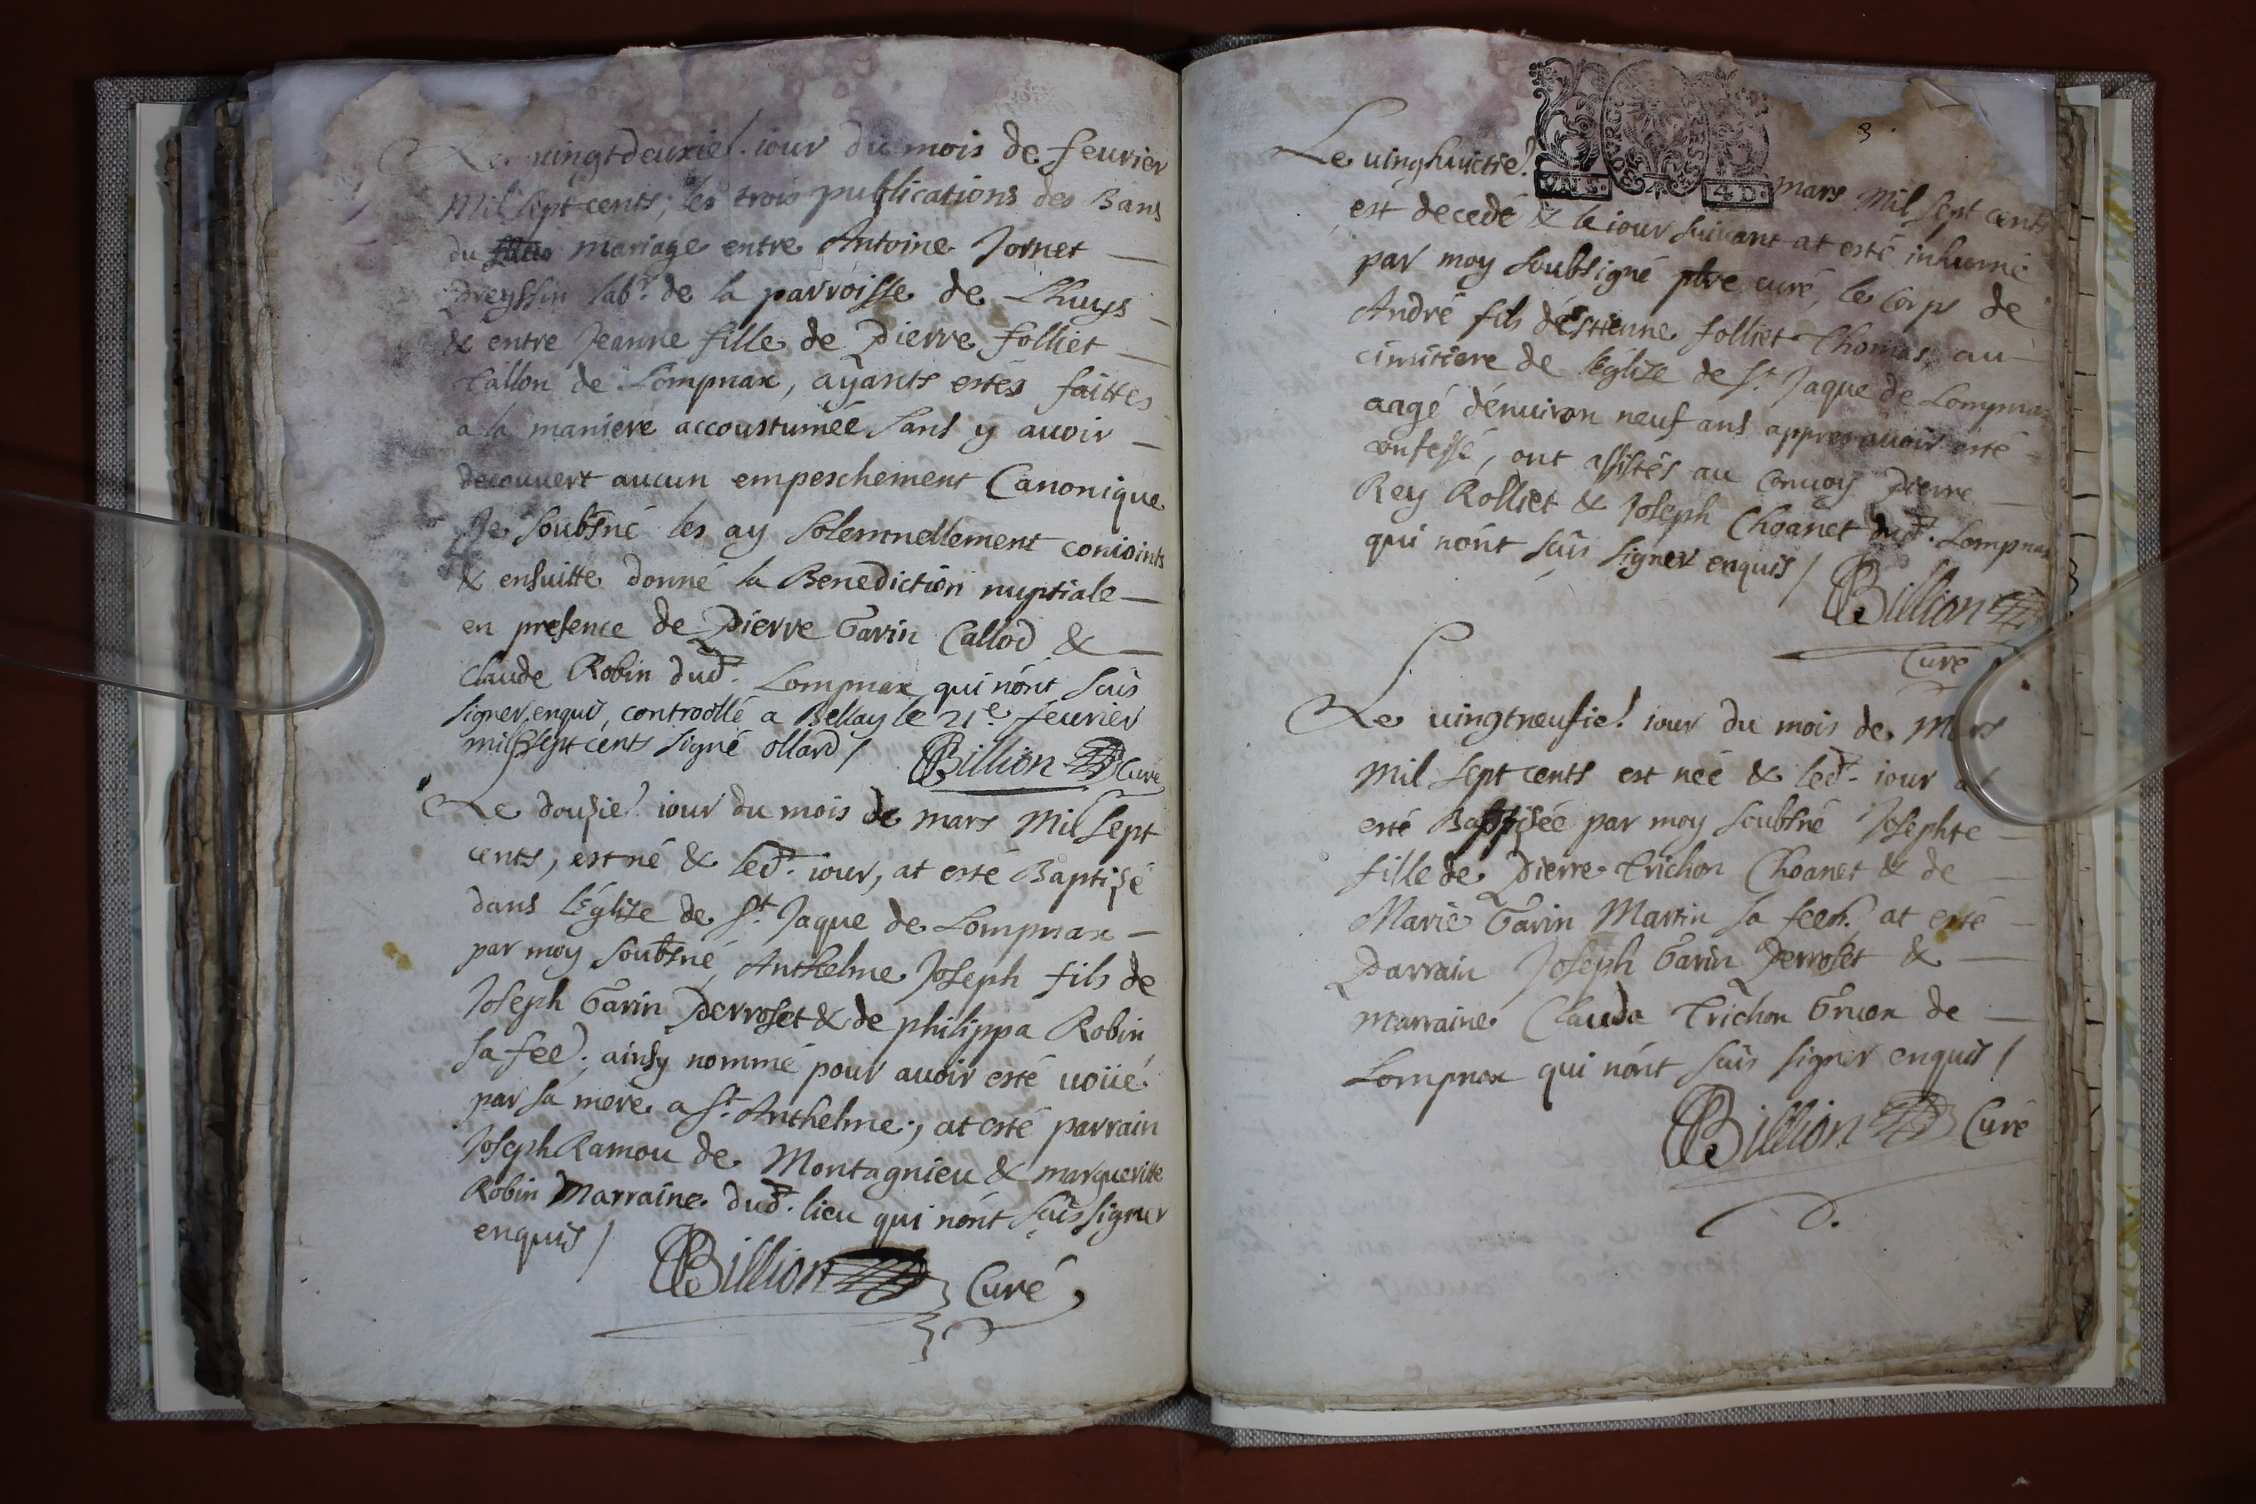 Le vingtdeuxie. iour du mois de feurier
Mil sept cents, les trois publications des Bans
du mariage entre Antoine Jornet
Preyssin lab.r de la parroisse de Lhuys
& entre Jeanne fille de Pierre folliet
Callon de Lompnax, ayants estés faittes
a la maniere accoustumée sans y auoir
decouuert aucun empeschement Canonique
Je soubsné les ay solemnellement conioints
& ensuitte donné la Benediction nuptiale
en presence de Pierre Garin Callod &
Claude Robin dud. Lompnax qui nónt sçûs
signer enquis, controollé a Bellay le 21e. feurier
mil sept cents signé ollard /
Billion Curé
Le douzie. iour du mois de mars Mil sept
cents, est né & led. iour, at esté Baptizé
dans lÉglize de St. Jaque de Lompnax
par moy soubsné, Anthelme Joseph fils de
Joseph Garin Perroset & de philippa Robin
sa fee. ainsy nommé pour auoir esté uoüé
par sa mere a St. Anthelme, at esté parrain
Joseph Ramou de Montagnieu & marguerite
Robin Marraine dud. lieu qui nónt sçûs signer
enquis /
Billion Curé
3
VN S. 4 D.
Le uinghuictie. mars Mil sept cents
est decedé & le iour suiuant at esté inhumé
par moy soubsigné ptre curé, le Corps de
André fils déstienne folliet Thomas au
cimitiere de léglize de St. Jaque de Lompnax
aagé dénuiron neuf ans appres auoir esté
confessé, ont assistés au conuoy Pierre
Rey Rolliet & Joseph Choanet dud. Lompnax
qui nónt sçûs signer enquis /
Billion
Curé
Le uingtneufie. iour du mois de Mars
Mil sept cents est neé & led. iour at
esté Baptizée par moy soubsné Josephte
fille de Pierre Trichon Choanet & de
Marie Garin Martin sa feem. at esté
Parrain Joseph Garin Perroset &
Marraine Clauda Trichon Gruon de
Lompnax qui nónt sçûs signer enquis /
Billion Curé